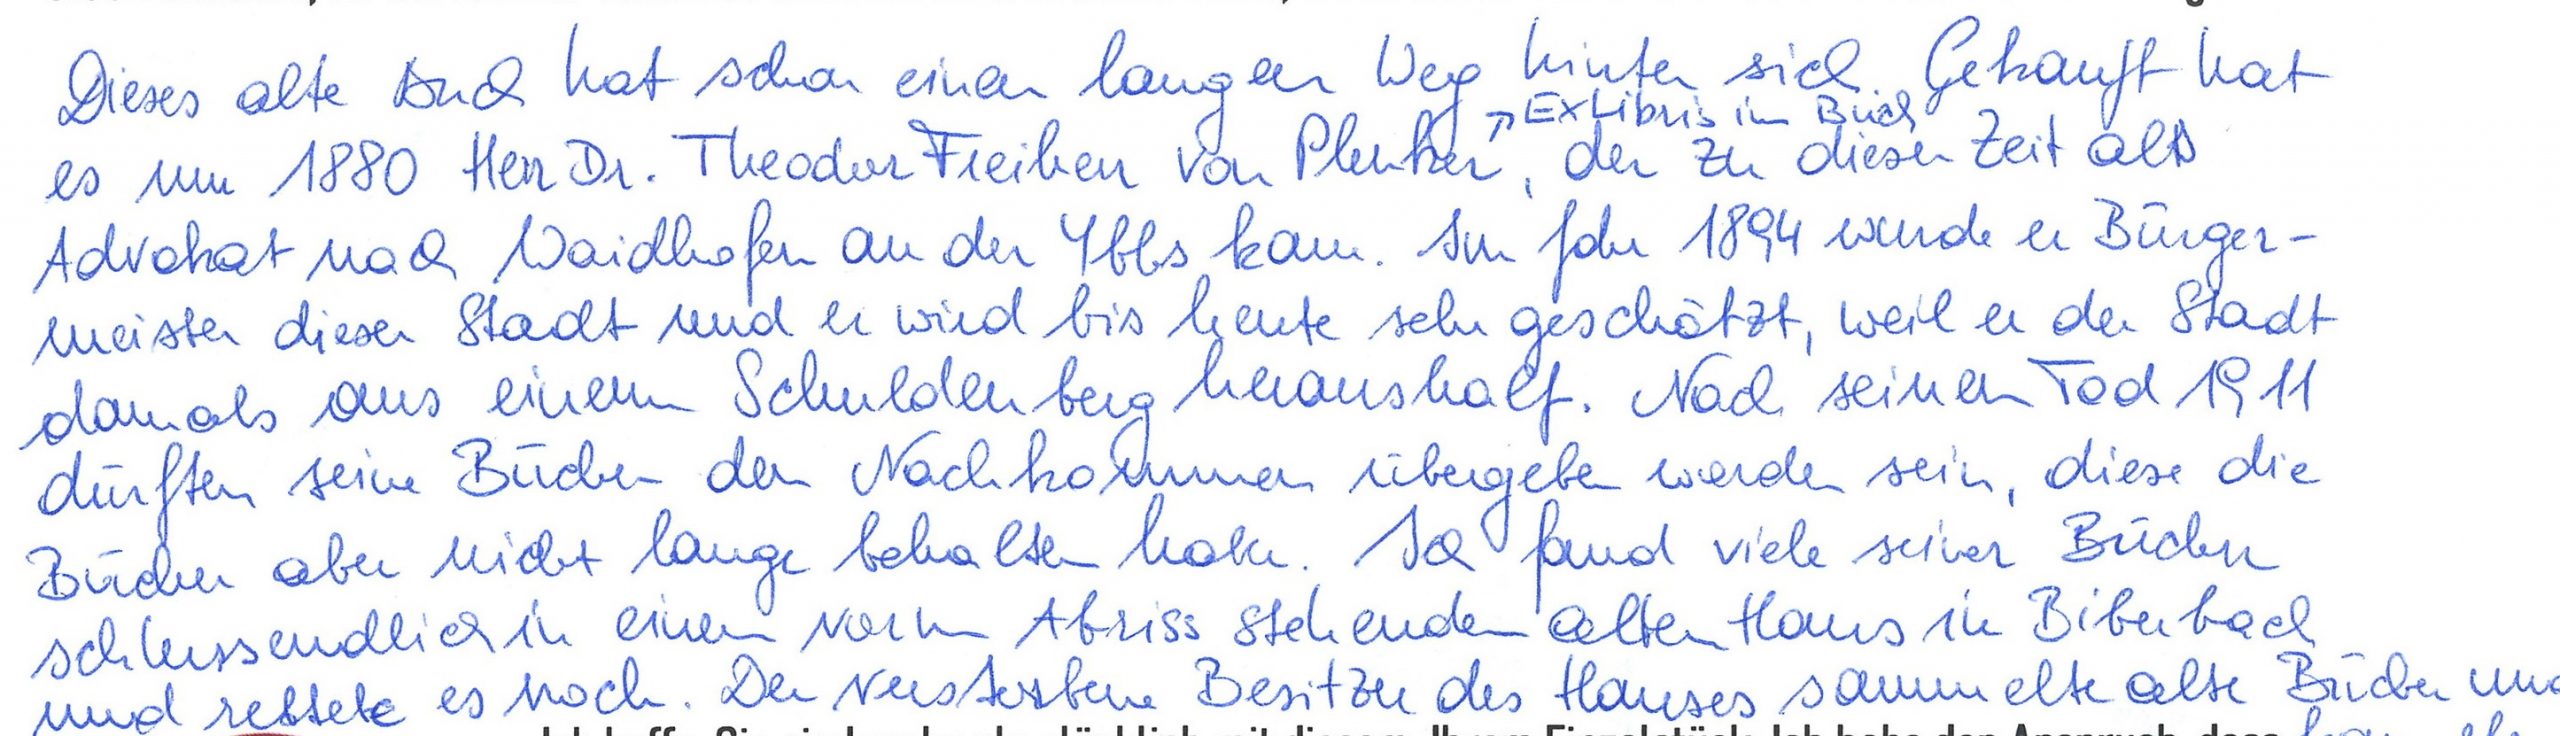 Dieses alte Buch hat schon einen langen Weg hinter sich. Gekauft hat
↗ ExLibris im Buch
es um 1880 Herr Dr. Theodor Freiherr von Plenker, der zu dieser Zeit als
Advokat nach Waidhofen an der Ybbs kam. Im Jahr 1894 wurde er Bürger-
meister dieser Stadt und er wird bis heute sehr geschätzt, weil er der Stadt
damals aus einem Schuldenberg heraushalf. Nach seinem Tod 1911
dürften seine Bücher den Nachkommen übergeben worden sein, diese die
Bücher aber nicht lange behalten haben. Ich fand viele seiner Bücher
schlussendlich in einem vorm Abriss stehenden alten Haus in Biberbach
und rettete es noch. Der verstorbene Besitzer des Hauses sammelte alte Bücher und